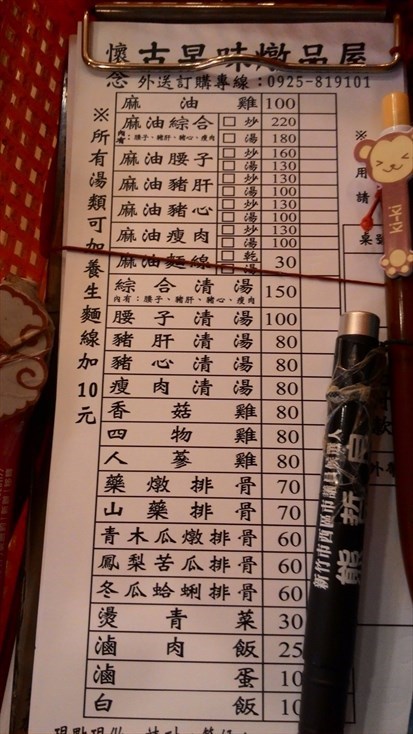 懷念 古早味燉品屋
外送訂購專線：0925-819101
※所有湯類可加養生麵線加10元
麻油雞 100
麻油綜合 □炒 220
內有：腰子、豬肝、豬心、瘦肉 □湯 180
麻油腰子 □炒 160
□湯 130
麻油豬肝 □炒 130
□湯 100
麻油豬心 □炒 130
□湯 100
麻油瘦肉 □炒 130
□湯 100
麻油麵線 □乾 30
□湯
綜合清湯 150
內有：腰子、豬肝、豬心、瘦肉
腰子清湯 100
豬肝清湯 80
豬心清湯 80
瘦肉清湯 80
香菇雞 80
四物雞 80
人蔘雞 80
藥燉排骨 70
山藥排骨 70
青木瓜燉排骨 60
鳳梨苦瓜排骨 60
冬瓜蛤蜊排骨 60
燙青菜 30
滷肉飯 25
滷蛋 10
白飯 10
※
用
請
桌
新竹市西區市議員候選人
熊哲